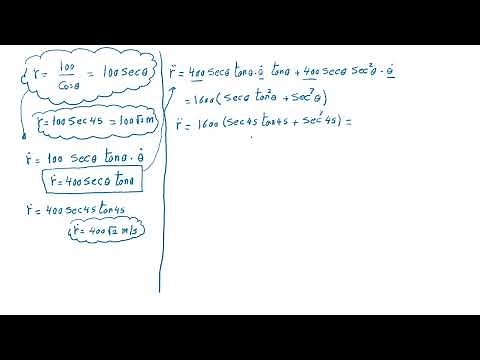 r = 100/Cosθ = 100 Secθ
r = 100 Sec 45 = 100√2 m
ṙ = 100 Secθ tanθ · θ̇
ṙ = 400 Secθ tanθ
ṙ = 400 Sec 45 tan 45
ṙ = 400√2 m/s
r̈ = 400 Secθ tanθ · θ̇ tanθ + 400 Secθ Sec²θ · θ̇
= 1600 ( Secθ tan²θ + Sec³θ )
r̈ = 1600 ( Sec 45 tan 45 + Sec³ 45 ) =